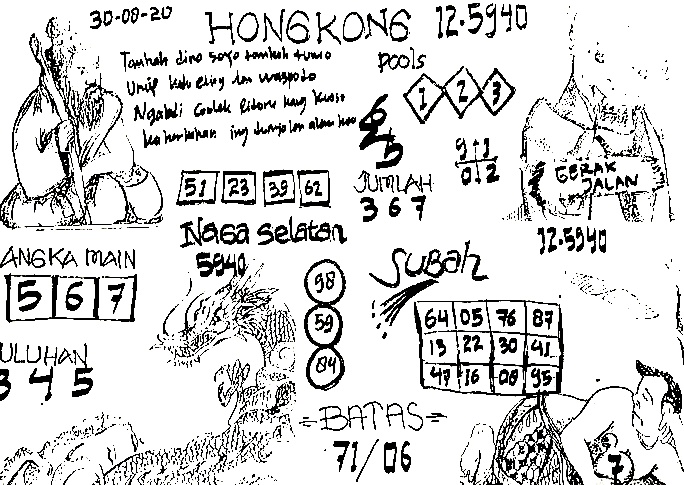 30-08-20
HONGKONG 12.5940
Pools
Tambah dino soyo tambah tuwo
Urip kah eling lan waspodo
Ngabdi
1 2 3
6
5
9 1
0 2
GERAK
JALAN
51 23 39 62
JUMLAH
3 6 7
Naga Selatan
5940
12.5940
ANGKA MAIN
5 6 7
98
59
84
SUBAH
64 05 76 87
13 22 30 41
47 16 08 95
ULUHAN
3 4 5
=BATAS=
71/06
7